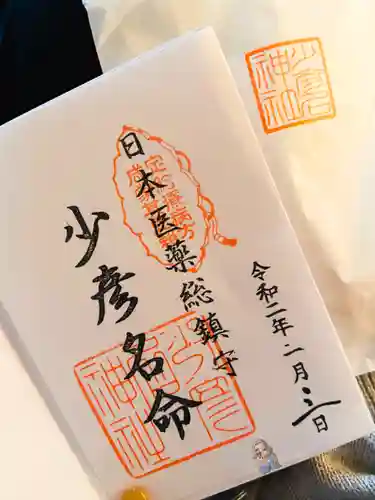 令和二年二月二二日
日本医薬総鎮守
少彦名命
少彦名
神社
少彦名
神社